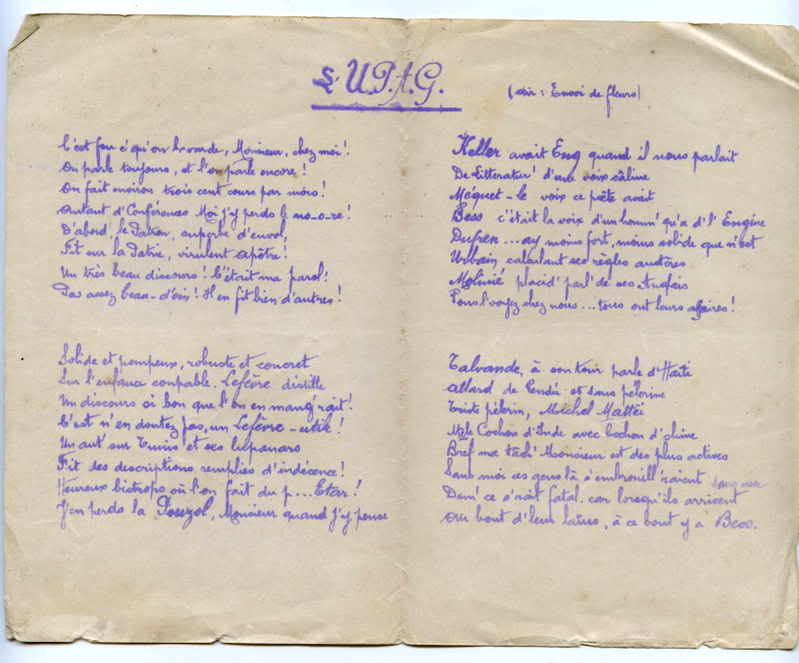 L'U.P.A.G.
(air : Envoi de fleurs)
C'est fou c'qu'on , Monsieur, chez moi !
On parle toujours, et l'on parle encore !
On fait moins trois cent cours par mois !
Autant d'Conférences Moi j'y perds le mo-o-re !
D'abord, le Patron, superbe d'envol,
Fit sur la Patrie, virulent apôtre !
Un très beau discours ! C'était ma parol !
Pas assez beau-d'ois ! Il en fit bien d'autres !
Solide et pompeux, robuste et concret
Sur l'enfance coupable, Lefèvre distille
Un discours si bon que l'on en mang'rait !
C'est n'en doutez pas, un Lefèvre-utile !
Un aut' sur Tunis et ses lupanars
F'it des descriptions remplies d'indécence !
Heureux bistrops où l'on fait du p...Etar !
J'en perds la Pouzol, Monsieur quand j'y pense
Keller avait Eng quand il nous parlait
De Litteratur' d'une voix câline
Méquet-le voix ce poète avait
Bess c'était la voix d'un homm' qu'a d'l' Engine
Dufren...ay moins fort, moins solide que n'est
Urbain calculant ses règles austères
Molinié placid' parl' de ses Anglais
Vous l'voyez chez nous...tous ont leurs affaires !
Talvande, à son tour parle d'Haïti
Allard de Vendée et sans pèlerine
Triste pèlerin, Michel Mattéi
Mzle Cochon d'Inde avec cochon d'chine
Bref ma tâch' Monsieur est des plus actives
Sans moi ces gens là s'embrouill'raient
Dam' ce s'rait fatal, car lorsqu'ils arrivent
Au bout d'leur laïus, à ce bout y a Bess.